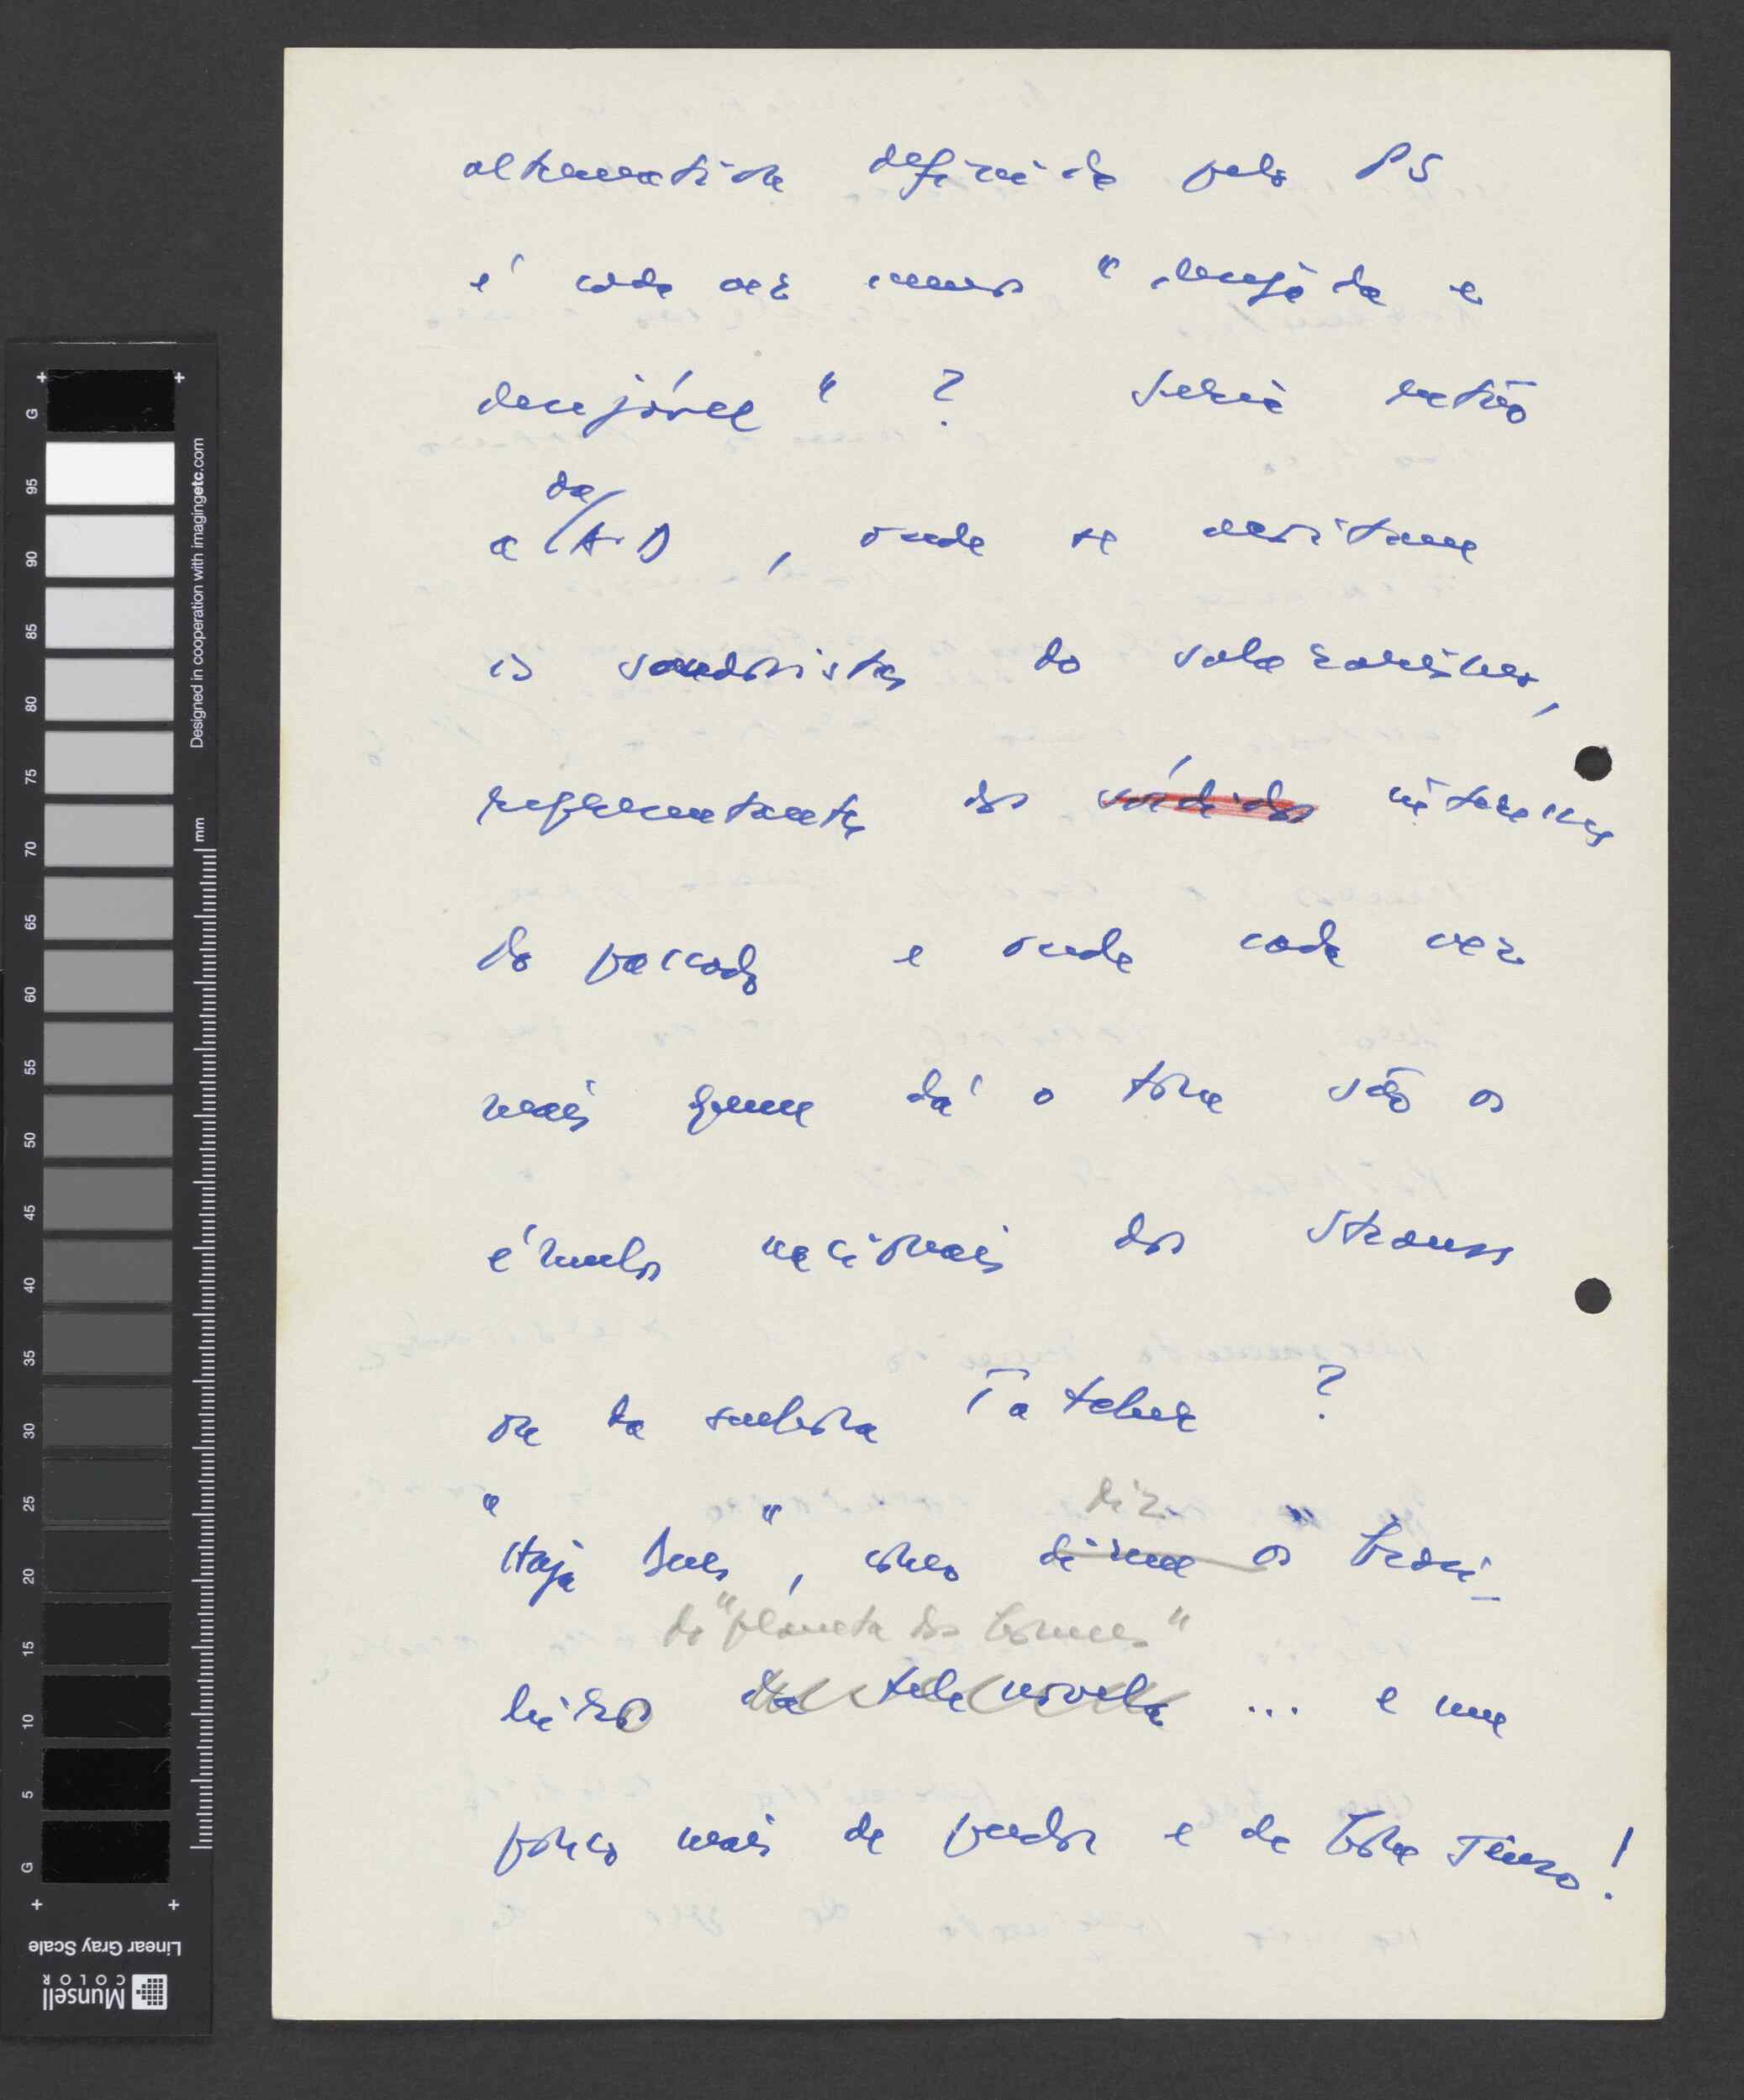 alternativa definida pelo PS
é cada vez menos "desejada e
desejável"? Seria então
a da A.D, onde se acoitam
os saudosistas do salazarismo,
representantes dos sórdidos interesses
do passado e onde cada vez
mais quem dá o tom são os
émulos nacionais dos Strauss
ou da senhora Tatcher?
diz
"Haja Deus", como dizem os brasi-
do "planeta dos homens"
leiros da telenovela ... e um
pouco mais de pudor e de bom senso!
Designed in cooperation with imagingetc.com
mm
G 95 90 85 80 75 70 65 60 55 50 45 40 35 30 25 20 15 10 5 G
Linear Gray Scale
Munsell
COLOR